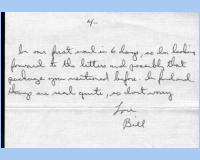 4-
In our first mail in 6 days, so Im looking
forward to the letters and possibly that
package you mentioned before. In
things are real quite, so dont worry
Love
Bill